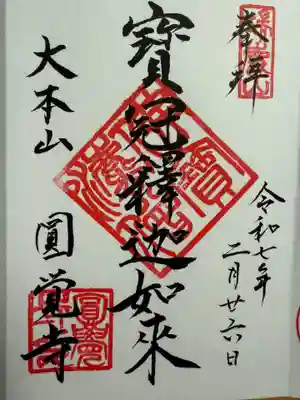 奉拝
令和七年
二月廿六日
寶冠釋迦如來
大本山
圓覚寺